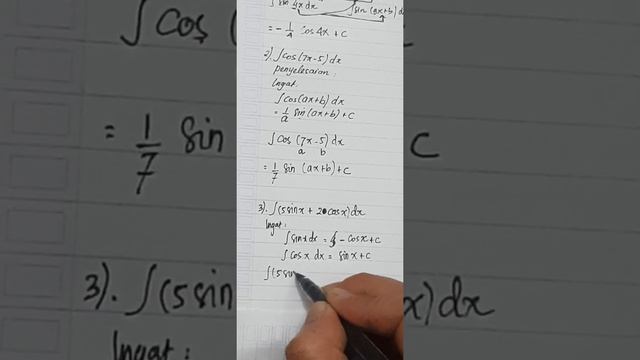 ∫ sin 4x dx ∫ sin (ax+b) dx
= -1/4 cos 4x + c
2). ∫ cos (7x-5) dx
penyelesaian:
Ingat:
∫ cos (ax+b) dx
= 1/a sin (ax+b) + c
∫ cos (7x-5) dx
a b
= 1/7 sin (ax+b) + c
3). ∫ (5 sin x + 20 cos x) dx
Ingat:
∫ sin x dx = - cos x + c
∫ cos x dx = sin x + c
∫ (5 sin